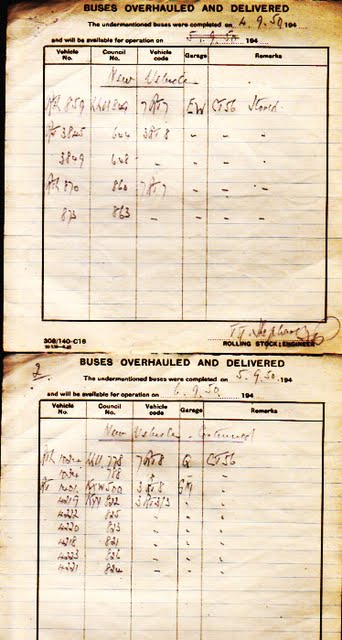 BUSES OVERHAULED AND DELIVERED
The undermentioned buses were completed on 4.9.50 194
and will be available for operation on 5.9.50 194
Vehicle No. Council No. Vehicle code Garage Remarks
New Vehicles
859 7RT7 EW CT56 Stored.
RT 3845 644 3RT8 " " "
3849 648 " " " "
870 860 7RT7 " " "
873 863 " " " "
308/140-C16
ROLLING STOCK ENGINEER
2.
BUSES OVERHAULED AND DELIVERED
The undermentioned buses were completed on 5.9.50. 194
and will be available for operation on 6.9.50. 194
Vehicle No. Council No. Vehicle code Garage Remarks
New Vehicles - Continued
778 7RT8 Q CT56
788 " " "
500 3RT8 GM "
4219 KXW 822 3RT3/3 " "
4222 825 " " "
4220 823 " " "
4218 821 " " "
4223 826 " " "
4221 824 " " "